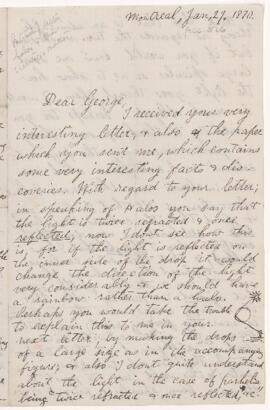 Montreal, Jan, 27, 1870.
Dear George,
I received your very
interesting letter, & also of the paper
which you sent me, which contains
some very interesting facts & dis-
coveries. With regard to your letter,
in speaking of Halos you say that
the light is twice refracted & once
reflected, now I don't see how this
is, for if the light is reflected on
the inner side of the drop it would
change the direction of the light
very considerably & we should have
a rainbow rather than a halo.
Perhaps you would take the trouble
to explain this to me in your
next letter, by making the drops
of a large size as in the accompanying
figure, & also I don't quite understand
about the light in the case of parhelia
being "twice refracted & once reflected, &c"